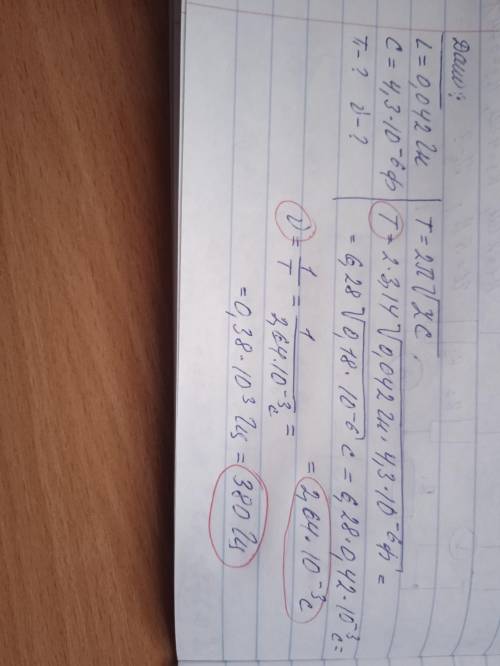 Дано:
L = 0,042 Гн
C = 4,3 · 10⁻⁶ ф
T - ? ν - ?
T = 2π√LC
T = 2 · 3,14 √0,042 Гн · 4,3 · 10⁻⁶ ф =
= 6,28 √0,18 · 10⁻⁶ c = 6,28 · 0,42 · 10⁻³ c =
= 2,64 · 10⁻³ c
ν = 1/T = 1/2,64 · 10⁻³ c =
= 0,38 · 10³ Гц = 380 Гц